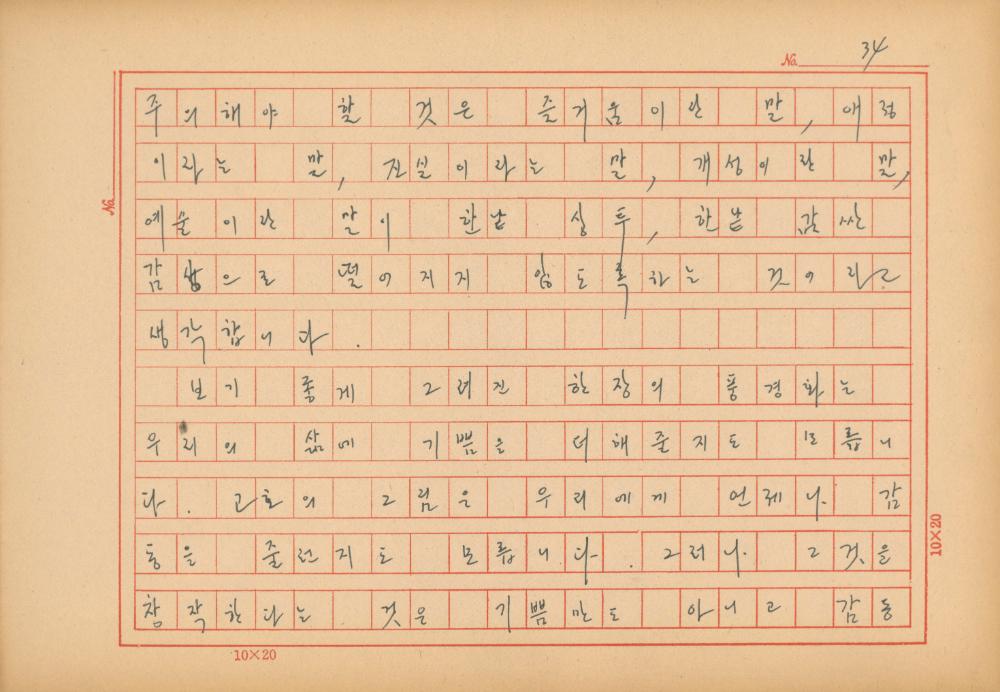 No. 34
주의해야 할 것은 즐거움이란 말, 애정
이라는 말, 진실이라는 말, 개성이란 말,
예술이란 말이 한낱 상투, 한낱 값싼
감상으로 떨어지지 않도록하는 것이라고
생각합니다.
보기 좋게 그려진 한장의 풍경화는
우리의 삶에 기쁨을 더해줄지도 모릅니
다. 고호의 그림은 우리에게 언제나 감
동을 줄런지도 모릅니다. 그러나 그것을
창작한다는 것은 기쁨만도 아니고 감동
No.
10×20
10×20